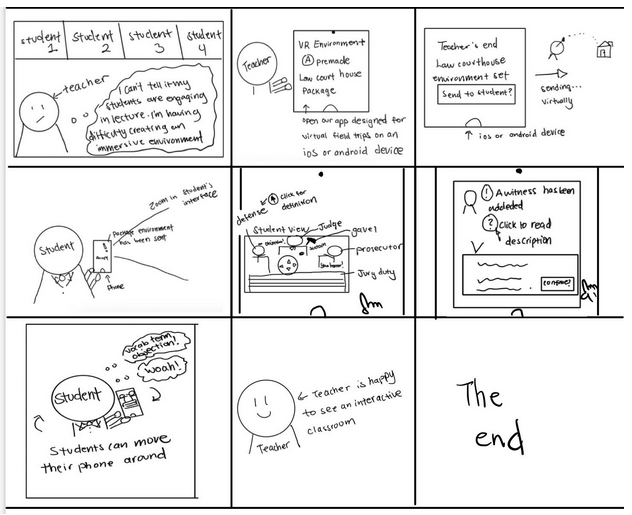 student 1
Student 2
student 3
student 4
teacher
I can't tell if my
students are engaging
in lecture. I'm having
difficulty creating an
immersive environment
Teacher
VR Environment
A premade
Law court house
Package
open our app designed for
virtual field trips on an
ios or android device
Teacher's end
Law courthouse
environment set
Send to student?
sending...
virtually
ios or android device
Zoom in student's
interface
Package environment
has been sent
Student
Phone
Click for
definition
defense
Student View
Judge
gavel
prosecutor
Jury duty
! A witness has been
addeded
? Click to read
description
continue?
vocab term
objection!
woah!
Student
Students can move
their phone around
Teacher is happy
to see an interactive
classroom
Teacher
The
end